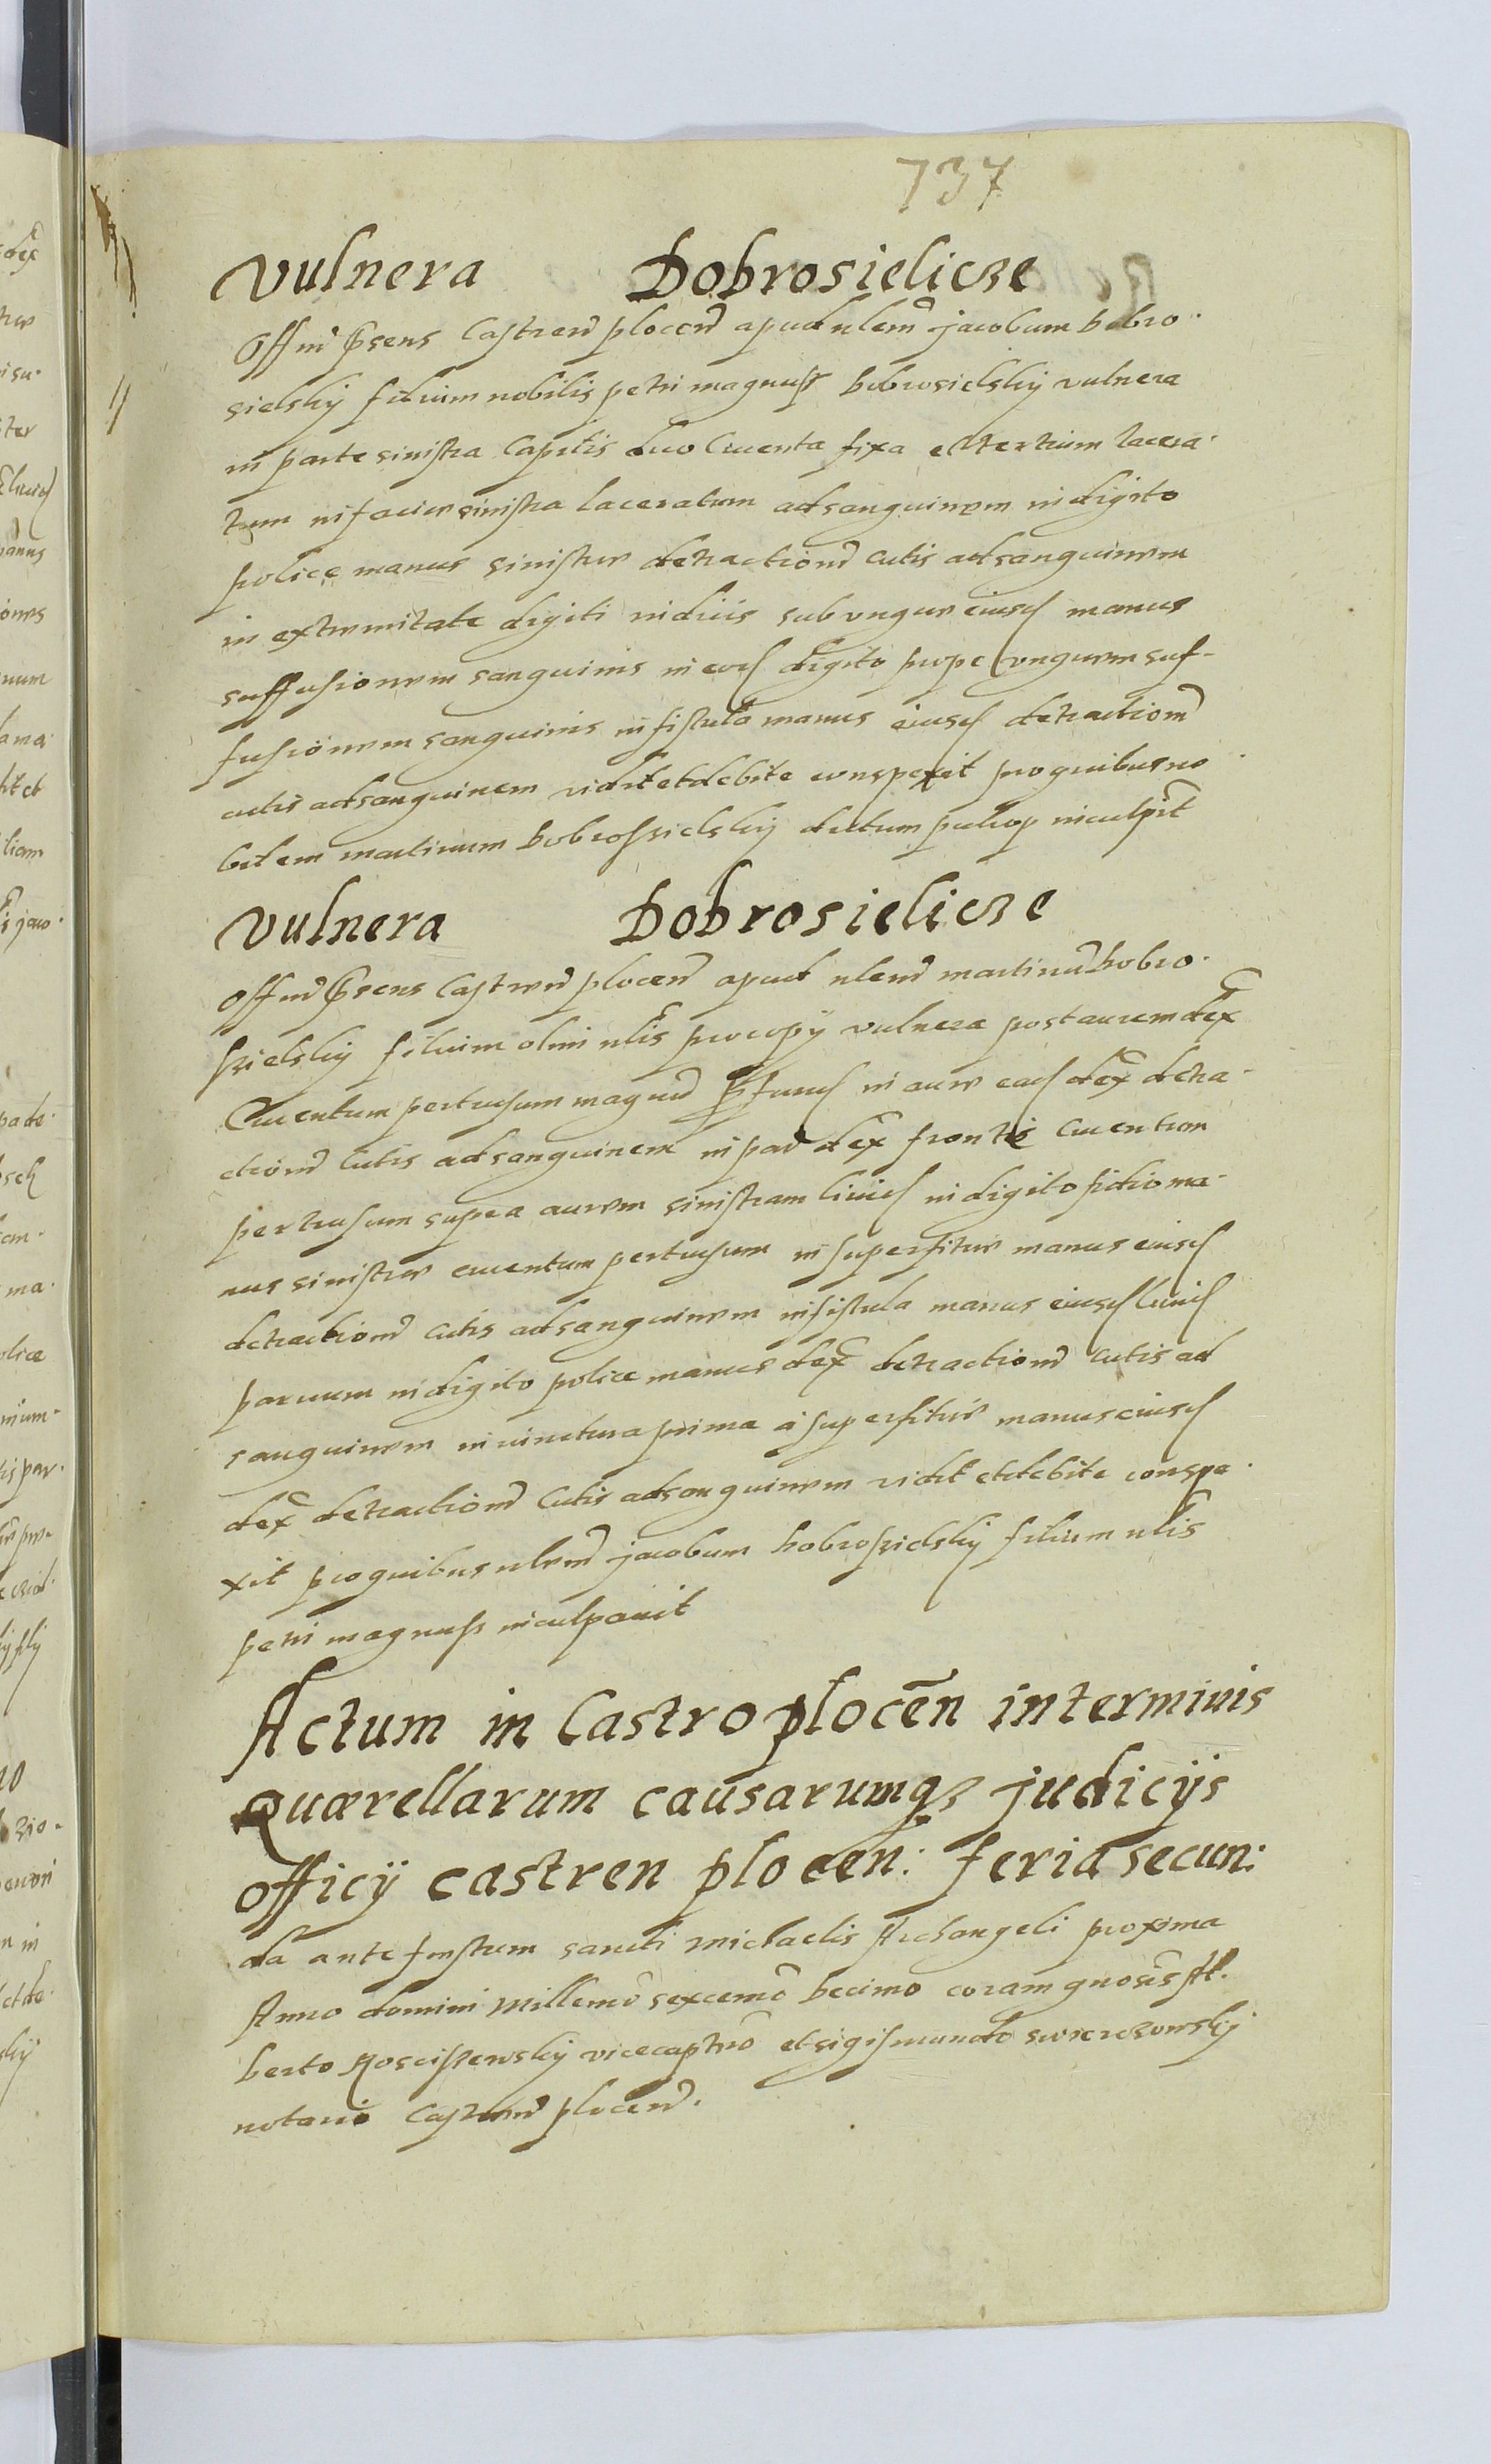 737
Vulnera Dobrosielicze
Offm p̃sens Castren̄ plocen̄ apud nlem̄ jacobum dobro.
sielskÿ filium nobilis petri magnuss dobrosielskÿ vulnera
in parte sinistra Capitis duo Cruenta fixa et tertium lacera.
tum in facie sinistra laceratum ad sanguinem in digito
police manus sinistre detractionē cutis ad sanguinem
in extremitate digiti indicis sub ungue eiusd manus
suffusionem sanguinis in eod digito prope unguem suf-
fusionem sanguinis in fistula manus eiusd detractionē
cutis ad sanguinem vidit et debite conspexit pro quibus no
bilem martinum dobrossielskÿ dictum inculpīt
Vulnera Dobrosielicze
Offm p̃sens Castren̄ plocen̄ apud nlem̄ martinū dobro.
ssielskÿ filium olim nlis procopÿ vulnera post aurem dex̄
Cruentum pertusum magnū in aure ead dex̄ detra.
ctionē Cutis ad sanguinem in par dex̄ frontis Cruentum
pertusum supra aurem sinistram livid in digito ma.
nus sinistre cruentum pertusum in superfitie manus eiusd
detractionē cutis ad sanguinem in fistula manus eiusd livid
parvum in digito police manus dex̄ detractionē cutis ad
sanguinem in iunctura prima a superfitie manus eiusd
dex̄ detractionē Cutis ad sanguinem vidit et debite conspe.
xit pro quibus nlem̄ jacobum dobrossielskÿ filium nlis
petri magnuss inculpavit
Actum in Castro plocēn in terminis
Quærellarum causarumqz judicÿs
officÿ castren plocen: feria secun:
da ante festum sancti Michaelis Archangeli proxima
Anno domini Millemō sexcemō decimo coram gnosis Al.
berto Mosciszewskÿ vicecaptnō et sigismundo
notario Castren̄ plocen̄.